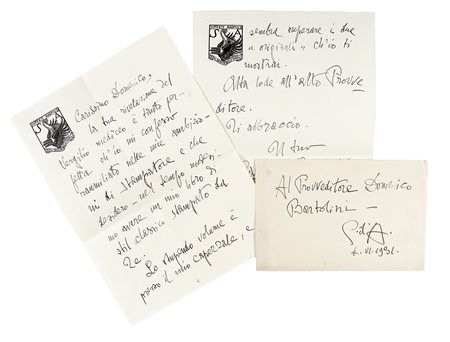 Carissimo Domenico,
la tua rivelazione del
Vergilio mediceo è tanto per-
fetta ch'io mi confesso
ranumiliato nelle mie ambizio-
ni di Stampatore e che
desidero – nel tempo mede-
mo avere un mio libro di
stil classico stampato da
Te.
Lo stupendo volume è
presso il mio capezzale, e
sembra superare i due
"originali" ch'io ti
mostrai.
Alta lode all'alto Provve
ditore.
Ti abbraccio.
Il tuo
Al Provveditore Domenico
Bartolini –
G. d'A.
4. VI. 1931.